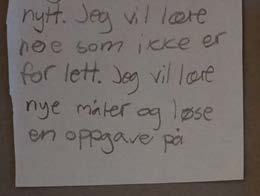 nytt. Jeg vil lære
noe som ikke er
for lett. Jeg vil lære
nye måter og løse
en oppgave på